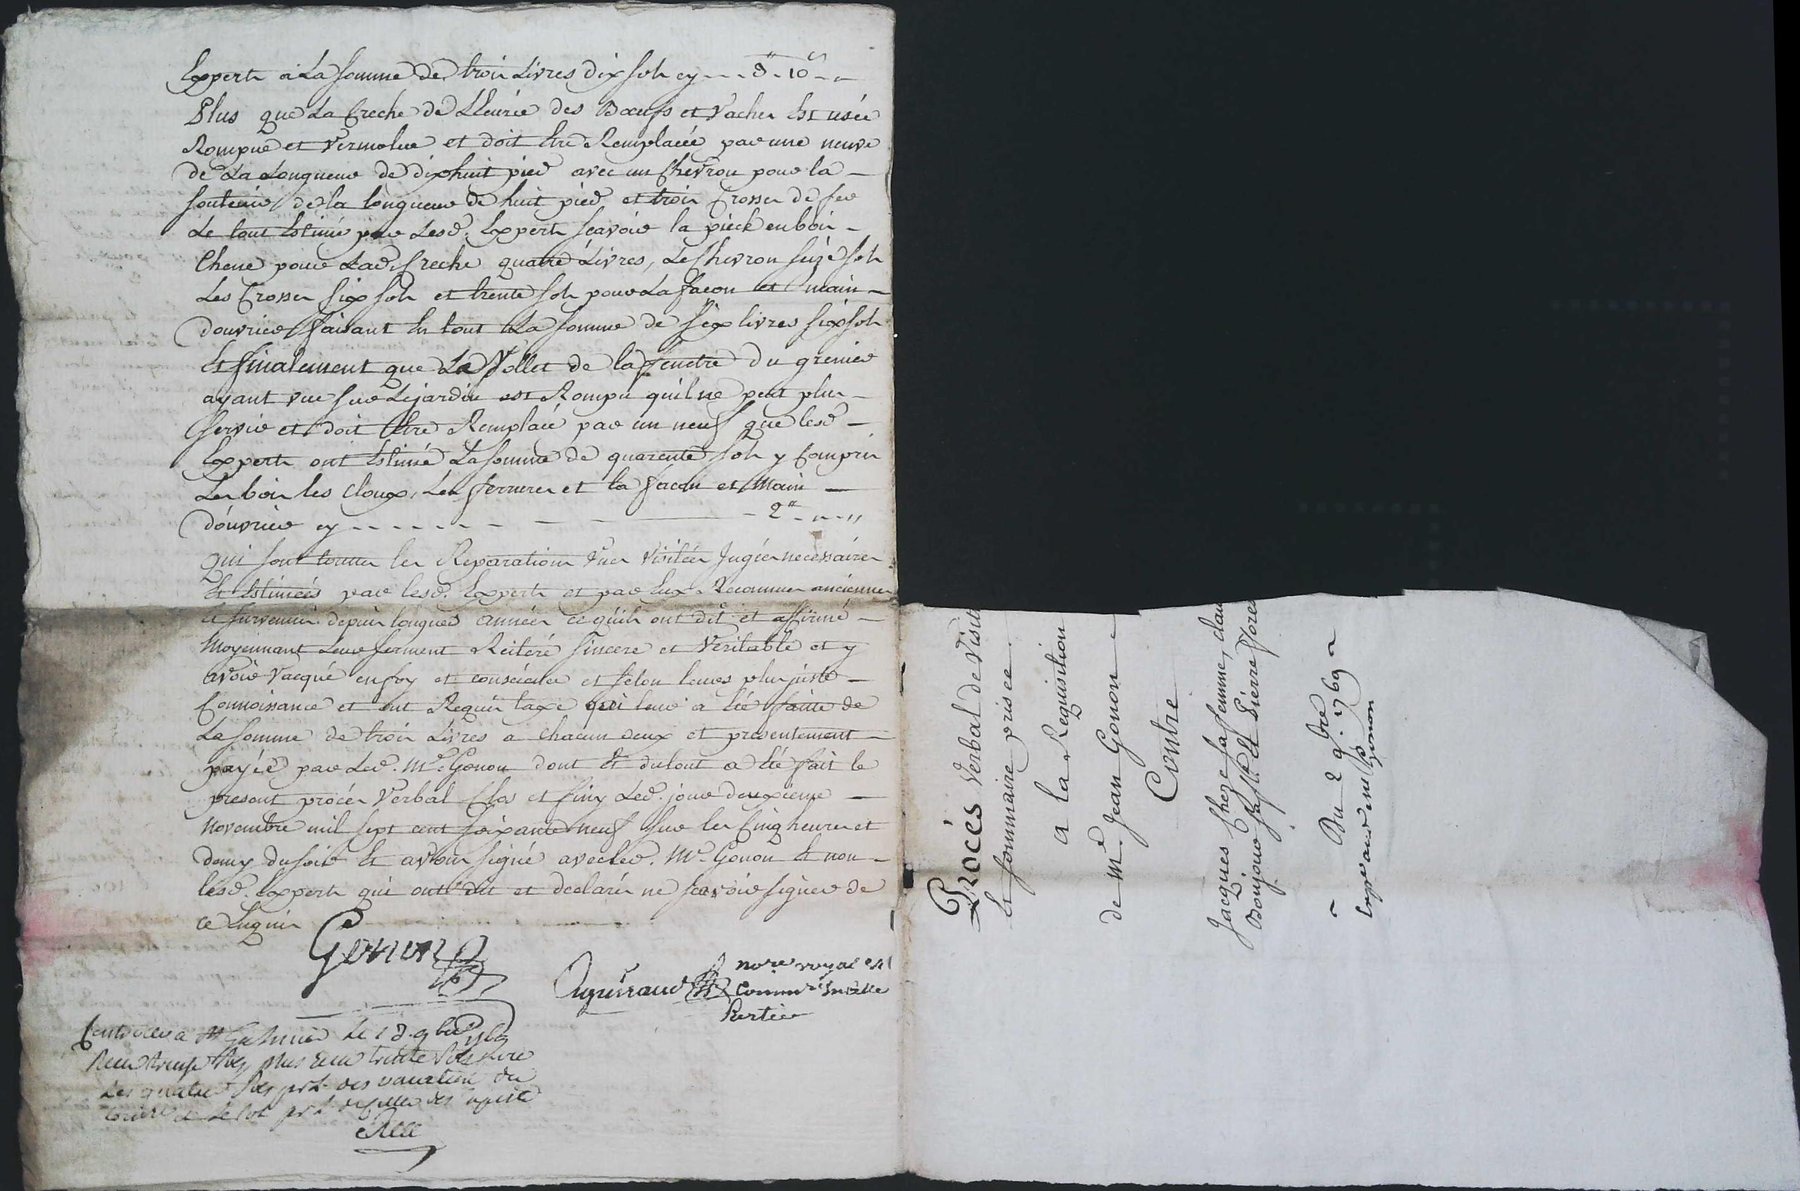 Experts a La somme de trois Livres dix sols cy - - 3# 10s
Plus que La Creche de L'Ecurie des Bœufs et Vaches Est usée
Rompue et Vermolue et doit Etre Remplacée par une neuve
de La Longueur de dixhuit pied avec un Chevron pour la
soutenir de la longueur de huit pied et trois Crosses de fer
Le tout Estimé par Lesd. Experts scavoir la piece en bois
Chene pour Lad. Creche quatre Livres, Le Chevron seize sols
Les Crosses six sols et trente sols pour La façon et main
douvrier faisant En tout La somme de six livres six sols
Et finalement que Le Vollet de la fenetre du grenier
ayant vue sur Le jardin est Rompu quil ne peut plus
servir et doit Etre Remplacé par un neuf que lesd.
Experts ont Estimé La somme de quarente sols y Compris
Les bois les cloux, Les ferrures et la facon et Main
d'ouvrier cy - - - - - - 2# " "
qui sont toutes les Reparations Vues Visitées Jugées necessaires
Et Estimées par lesd. Experts et par Eux Reconnues anciennes
Et survenues depuis longues années ce quils ont dit et affirmé
Moyennant Leur serment Reiteré sincere et Veritable et y
avoir Vacqué en foy et conscience et selon leurs plus juste
Connoissance et ont Requis taxe qui leur a Eté faitte de
La somme de trois Livres a chacun deux et presentement
payée par Led. Mr. Gonon dont Et du tout a Eté fait le
present procès Verbal Clos et finy Led. jour deuxieme
Novembre mil sept cent soixante neuf sur les Cinq heures et
demy du soir Et avons signé avec led. Mr. Gonon Et non
lesd. Experts qui ont dit et declarés ne scavoir signer de
ce Enquis
Gonon
nore royal et
Commre En cette
Partie
Le 18 9bre 1769
Procès Verbal de Visite
Et sommaire prisee
a la Requisition
de Mr. Jean Gonon
Contre
Jacques Cheze sa femme,
et Pierre
Du 2 9bre 1769
Gonon